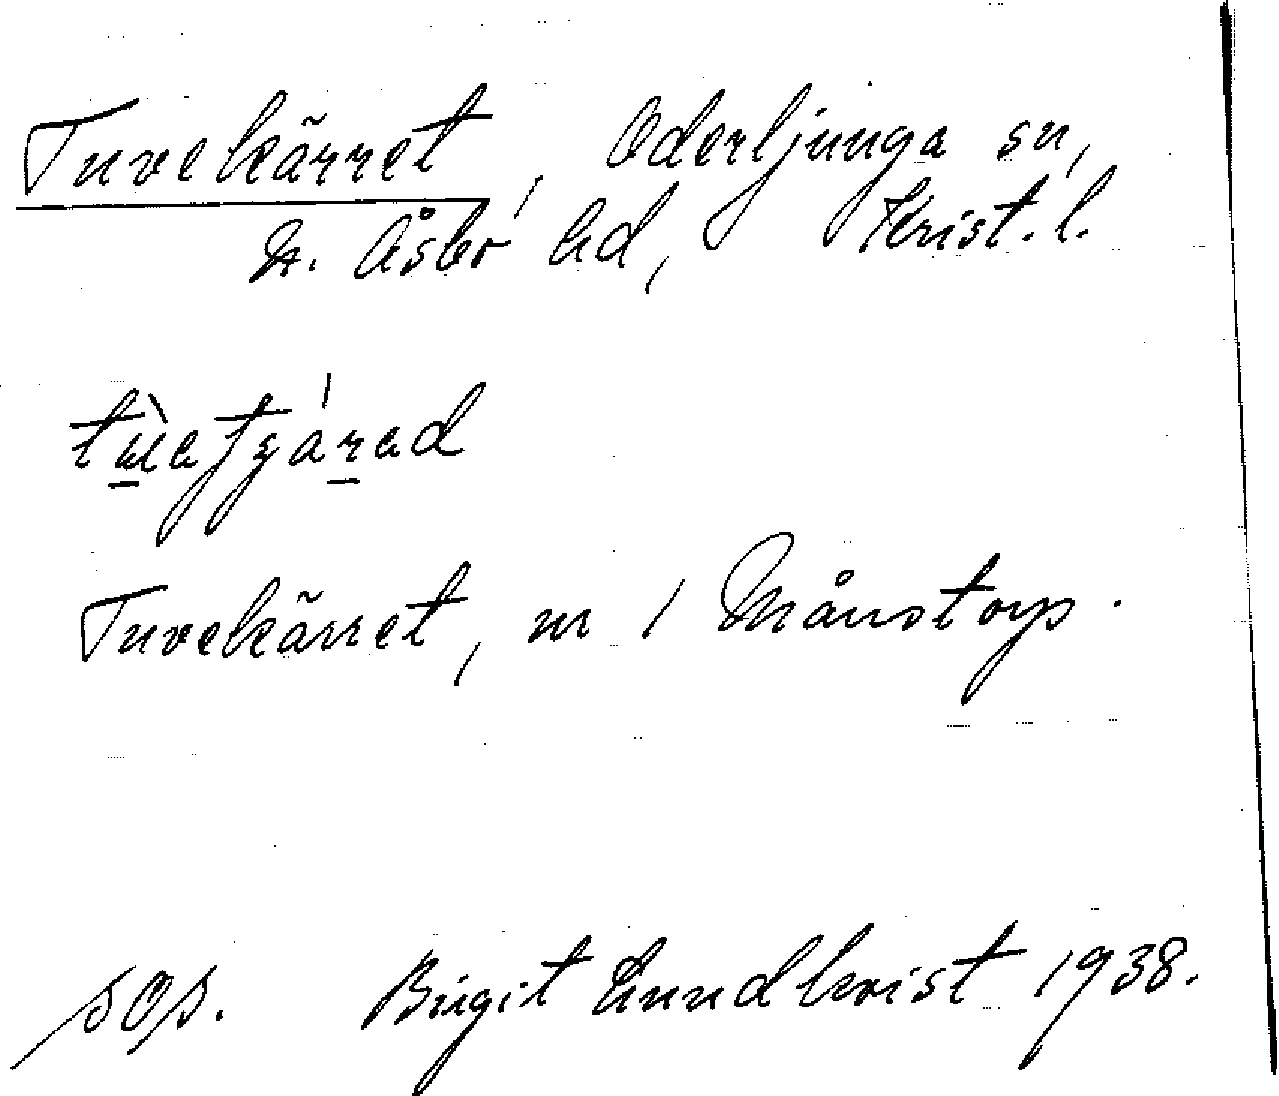 Tuvekärret, Oderljunga sn,
N. Åsbo hd, Krist. l.
Tuvekärret, nr 1 Månstorp.
sOs. Birgit Lundkvist 1938.